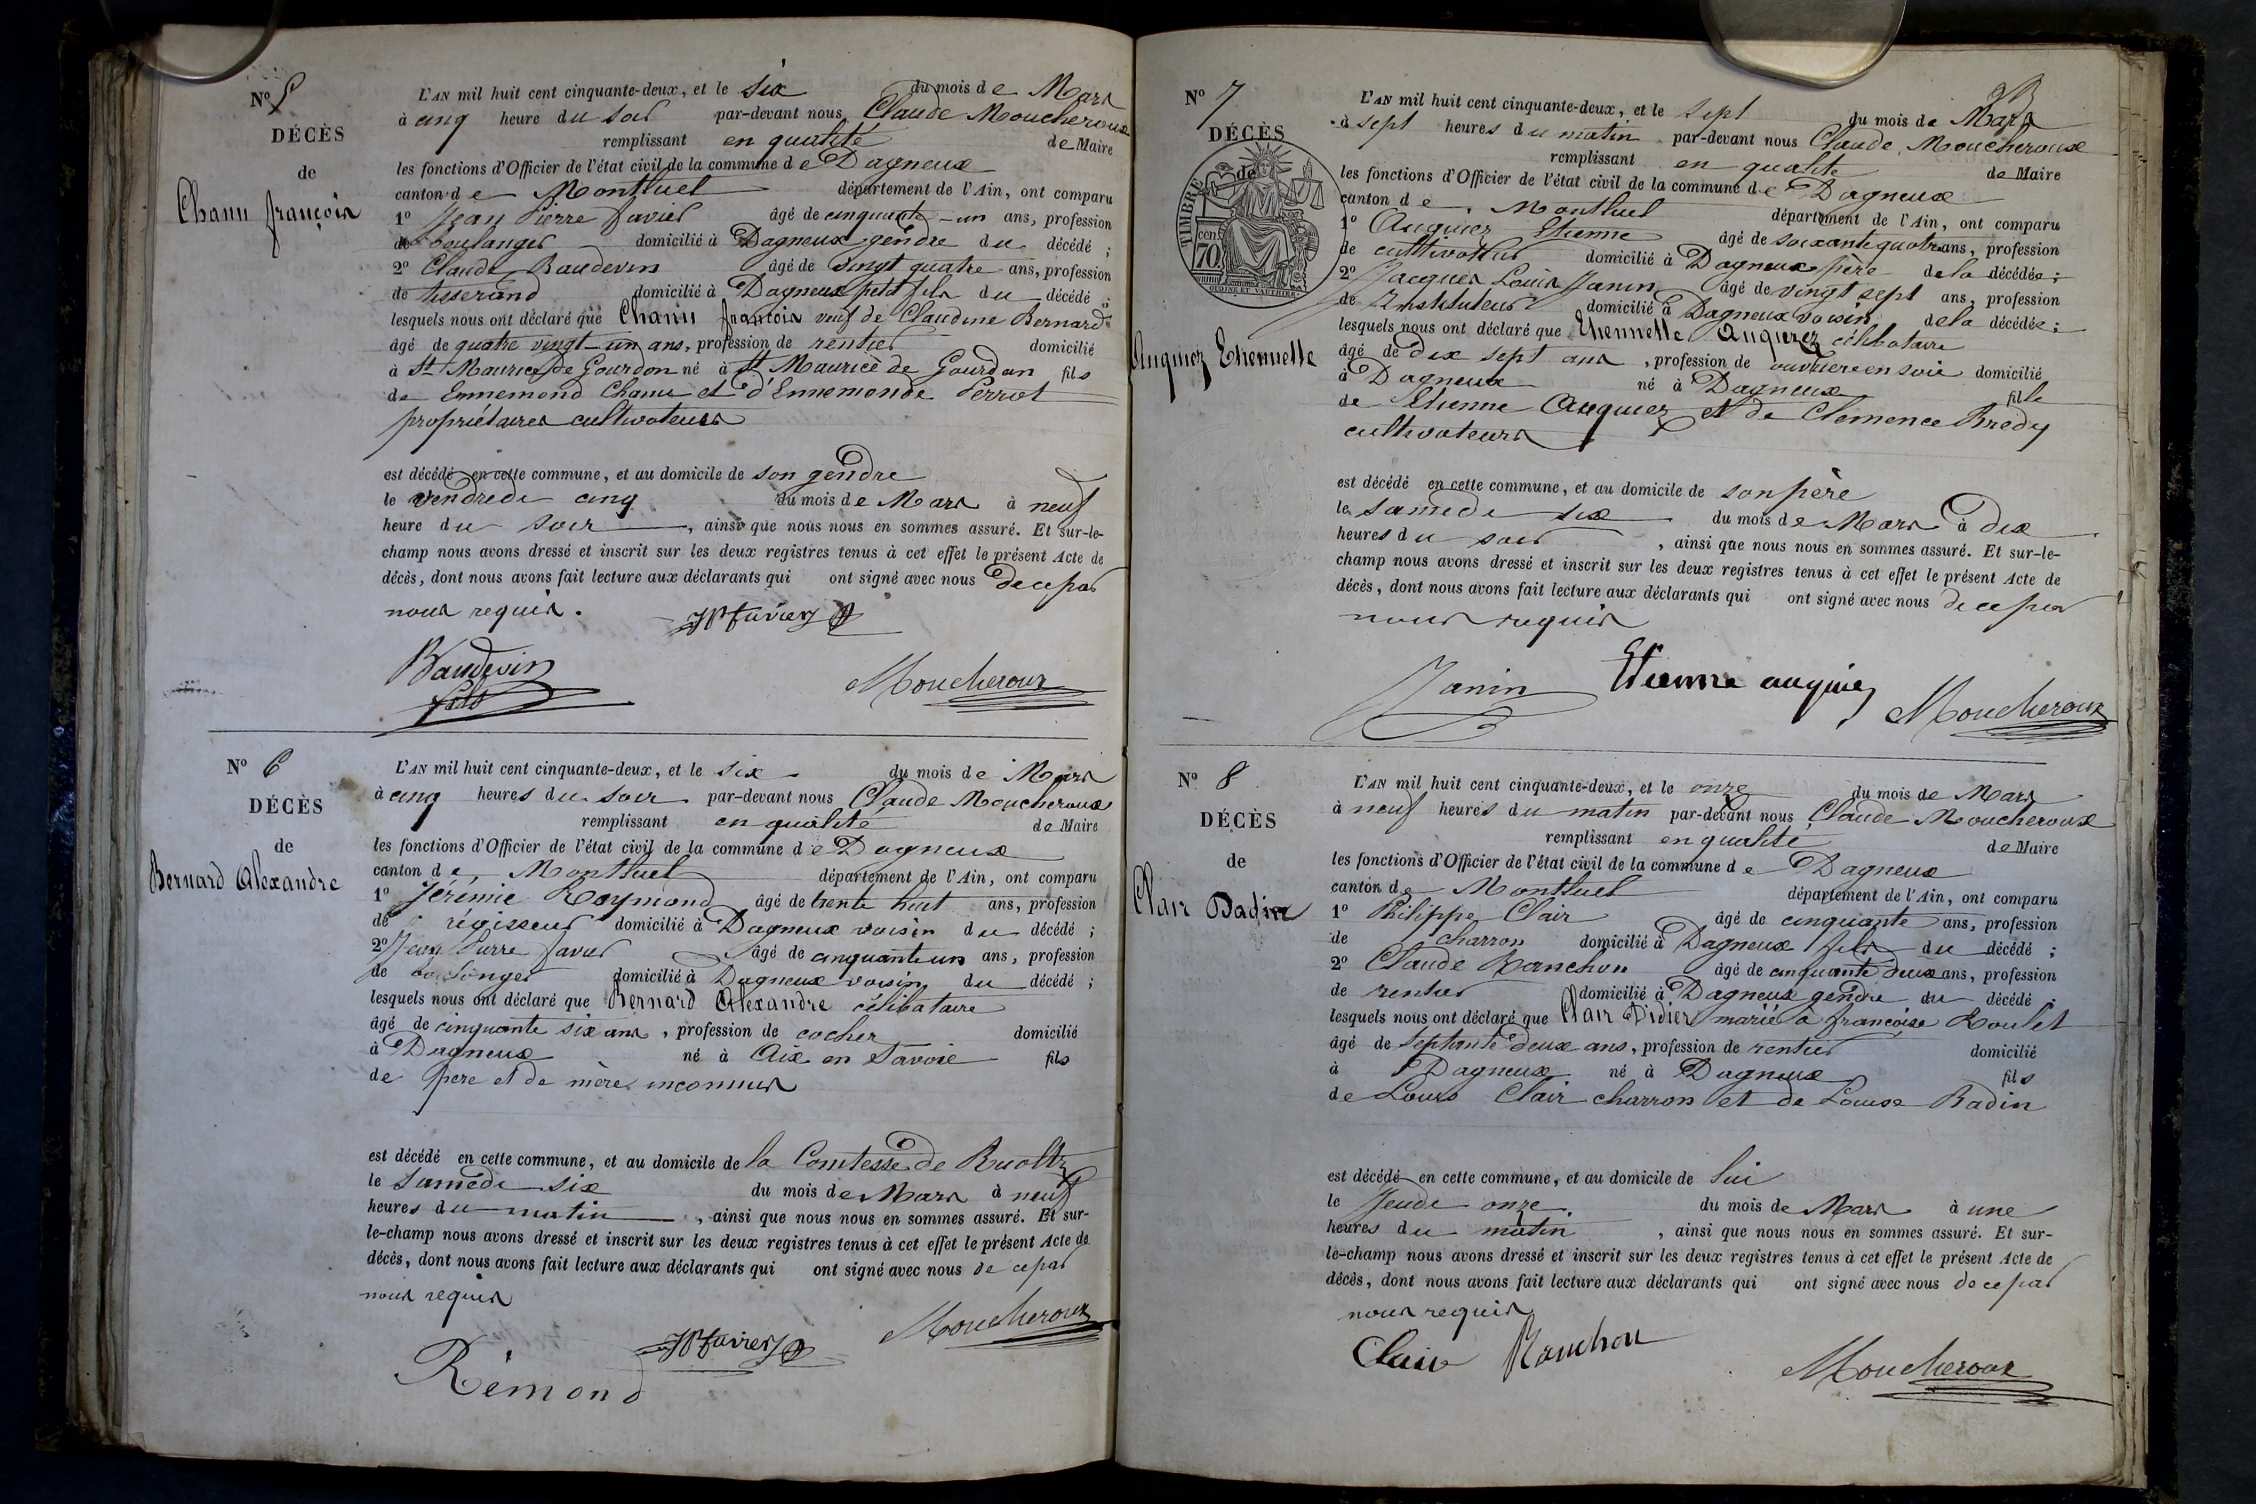 N° 5
DÉCÈS
de
Chanu françois
L'AN mil huit cent cinquante-deux, et le six du mois de Mars
à cinq heure du soir par-devant nous Claude Moucheroux
remplissant en qualité de Maire
les fonctions d'Officier de l'état civil de la commune de Dagneux
canton de Montluel département de l'Ain, ont comparu
1° Jean Pierre favier âgé de cinquante-un ans, profession
de boulanger domicilié à Dagneux gendre du décédé ;
2° Claude Baudevin âgé de vingt quatre ans, profession
de tisserand domicilié à Dagneux petit fils du décédé ;
lesquels nous ont déclaré que Chanu françois veuf de Claudine Bernard
âgé de quatre vingt-un ans, profession de rentier domicilié
à St Maurice de Gourdon né à St Maurice de Gourdon fils
de Ennemond Chanu et d'Ennemonde Perrot
propriétaires cultivateurs
est décédé en cette commune, et au domicile de son gendre
le vendredi cinq du mois de Mars à neuf
heure du soir, ainsi que nous nous en sommes assuré. Et sur-le-
champ nous avons dressé et inscrit sur les deux registres tenus à cet effet le présent Acte de
décès, dont nous avons fait lecture aux déclarants qui ont signé avec nous de ce par
nous requis.
JP favier
Baudevin
fils
Moucheroux
N° 6
DÉCÈS
de
Bernard Alexandre
L'AN mil huit cent cinquante-deux, et le six du mois de Mars
à cinq heures du soir par-devant nous Claude Moucheroux
remplissant en qualité de Maire
les fonctions d'Officier de l'état civil de la commune de Dagneux
canton de Montluel département de l'Ain, ont comparu
1° Jérémie Raymond âgé de trente huit ans, profession
de régisseur domicilié à Dagneux voisin du décédé ;
2° Jean Pierre favier âgé de cinquante un ans, profession
de boulanger domicilié à Dagneux voisin du décédé ;
lesquels nous ont déclaré que Bernard Alexandre célibataire
âgé de cinquante six ans, profession de cocher domicilié
à Dagneux né à Aix en Savoie fils
de père et de mère inconnus
est décédé en cette commune, et au domicile de la Comtesse de Ruoltz
le Samedi six du mois de Mars à neuf
heures du matin, ainsi que nous nous en sommes assuré. Et sur-
le-champ nous avons dressé et inscrit sur les deux registres tenus à cet effet le présent Acte de
décès, dont nous avons fait lecture aux déclarants qui ont signé avec nous de ce par
nous requis
Moucheroux
JP favier
Rémond
N° 7
DÉCÈS
de
TIMBRE
70 cen
Auquiez Etiennette
L'AN mil huit cent cinquante-deux, et le sept du mois de Mars
à sept heures du matin par-devant nous Claude Moucheroux
remplissant en qualité de Maire
les fonctions d'Officier de l'état civil de la commune de Dagneux
canton de Montluel département de l'Ain, ont comparu
1° Auquiez Etienne âgé de soixante quatre ans, profession
de cultivateur domicilié à Dagneux père de la décédée ;
2° Jacques Louis Janin âgé de vingt sept ans, profession
de Instituteur domicilié à Dagneux voisin de la décédée ;
lesquels nous ont déclaré que Etiennette Auquiez célibataire
âgé de dix sept ans, profession de ouvrière en soie domicilié
à Dagneux né à Dagneux fille
de Etienne Auquiez et de Clemence Bredy
cultivateurs
est décédé en cette commune, et au domicile de son père
le samedi six du mois de Mars à dix
heures du soir, ainsi que nous nous en sommes assuré. Et sur-le-
champ nous avons dressé et inscrit sur les deux registres tenus à cet effet le présent Acte de
décès, dont nous avons fait lecture aux déclarants qui ont signé avec nous de ce par
nous requis
Janin
Etienne auquiez
Moucheroux
N° 8
DÉCÈS
de
Clair Badin
L'AN mil huit cent cinquante-deux, et le onze du mois de Mars
à neuf heures du matin par-devant nous Claude Moucheroux
remplissant en qualité de Maire
les fonctions d'Officier de l'état civil de la commune de Dagneux
canton de Montluel département de l'Ain, ont comparu
1° Philippe Clair âgé de cinquante ans, profession
de charron domicilié à Dagneux fils du décédé ;
2° Claude Ranchon âgé de cinquante deux ans, profession
de rentier domicilié à Dagneux gendre du décédé ;
lesquels nous ont déclaré que Clair Didier marié à françoise Roulet
âgé de septante deux ans, profession de rentier domicilié
à Dagneux né à Dagneux fils
de Louis Clair charron et de Louise Badin
est décédé en cette commune, et au domicile de lui
le Jeudi onze du mois de Mars à une
heures du matin, ainsi que nous nous en sommes assuré. Et sur-
le-champ nous avons dressé et inscrit sur les deux registres tenus à cet effet le présent Acte de
décès, dont nous avons fait lecture aux déclarants qui ont signé avec nous de ce par
nous requis
Clair Ranchon
Moucheroux